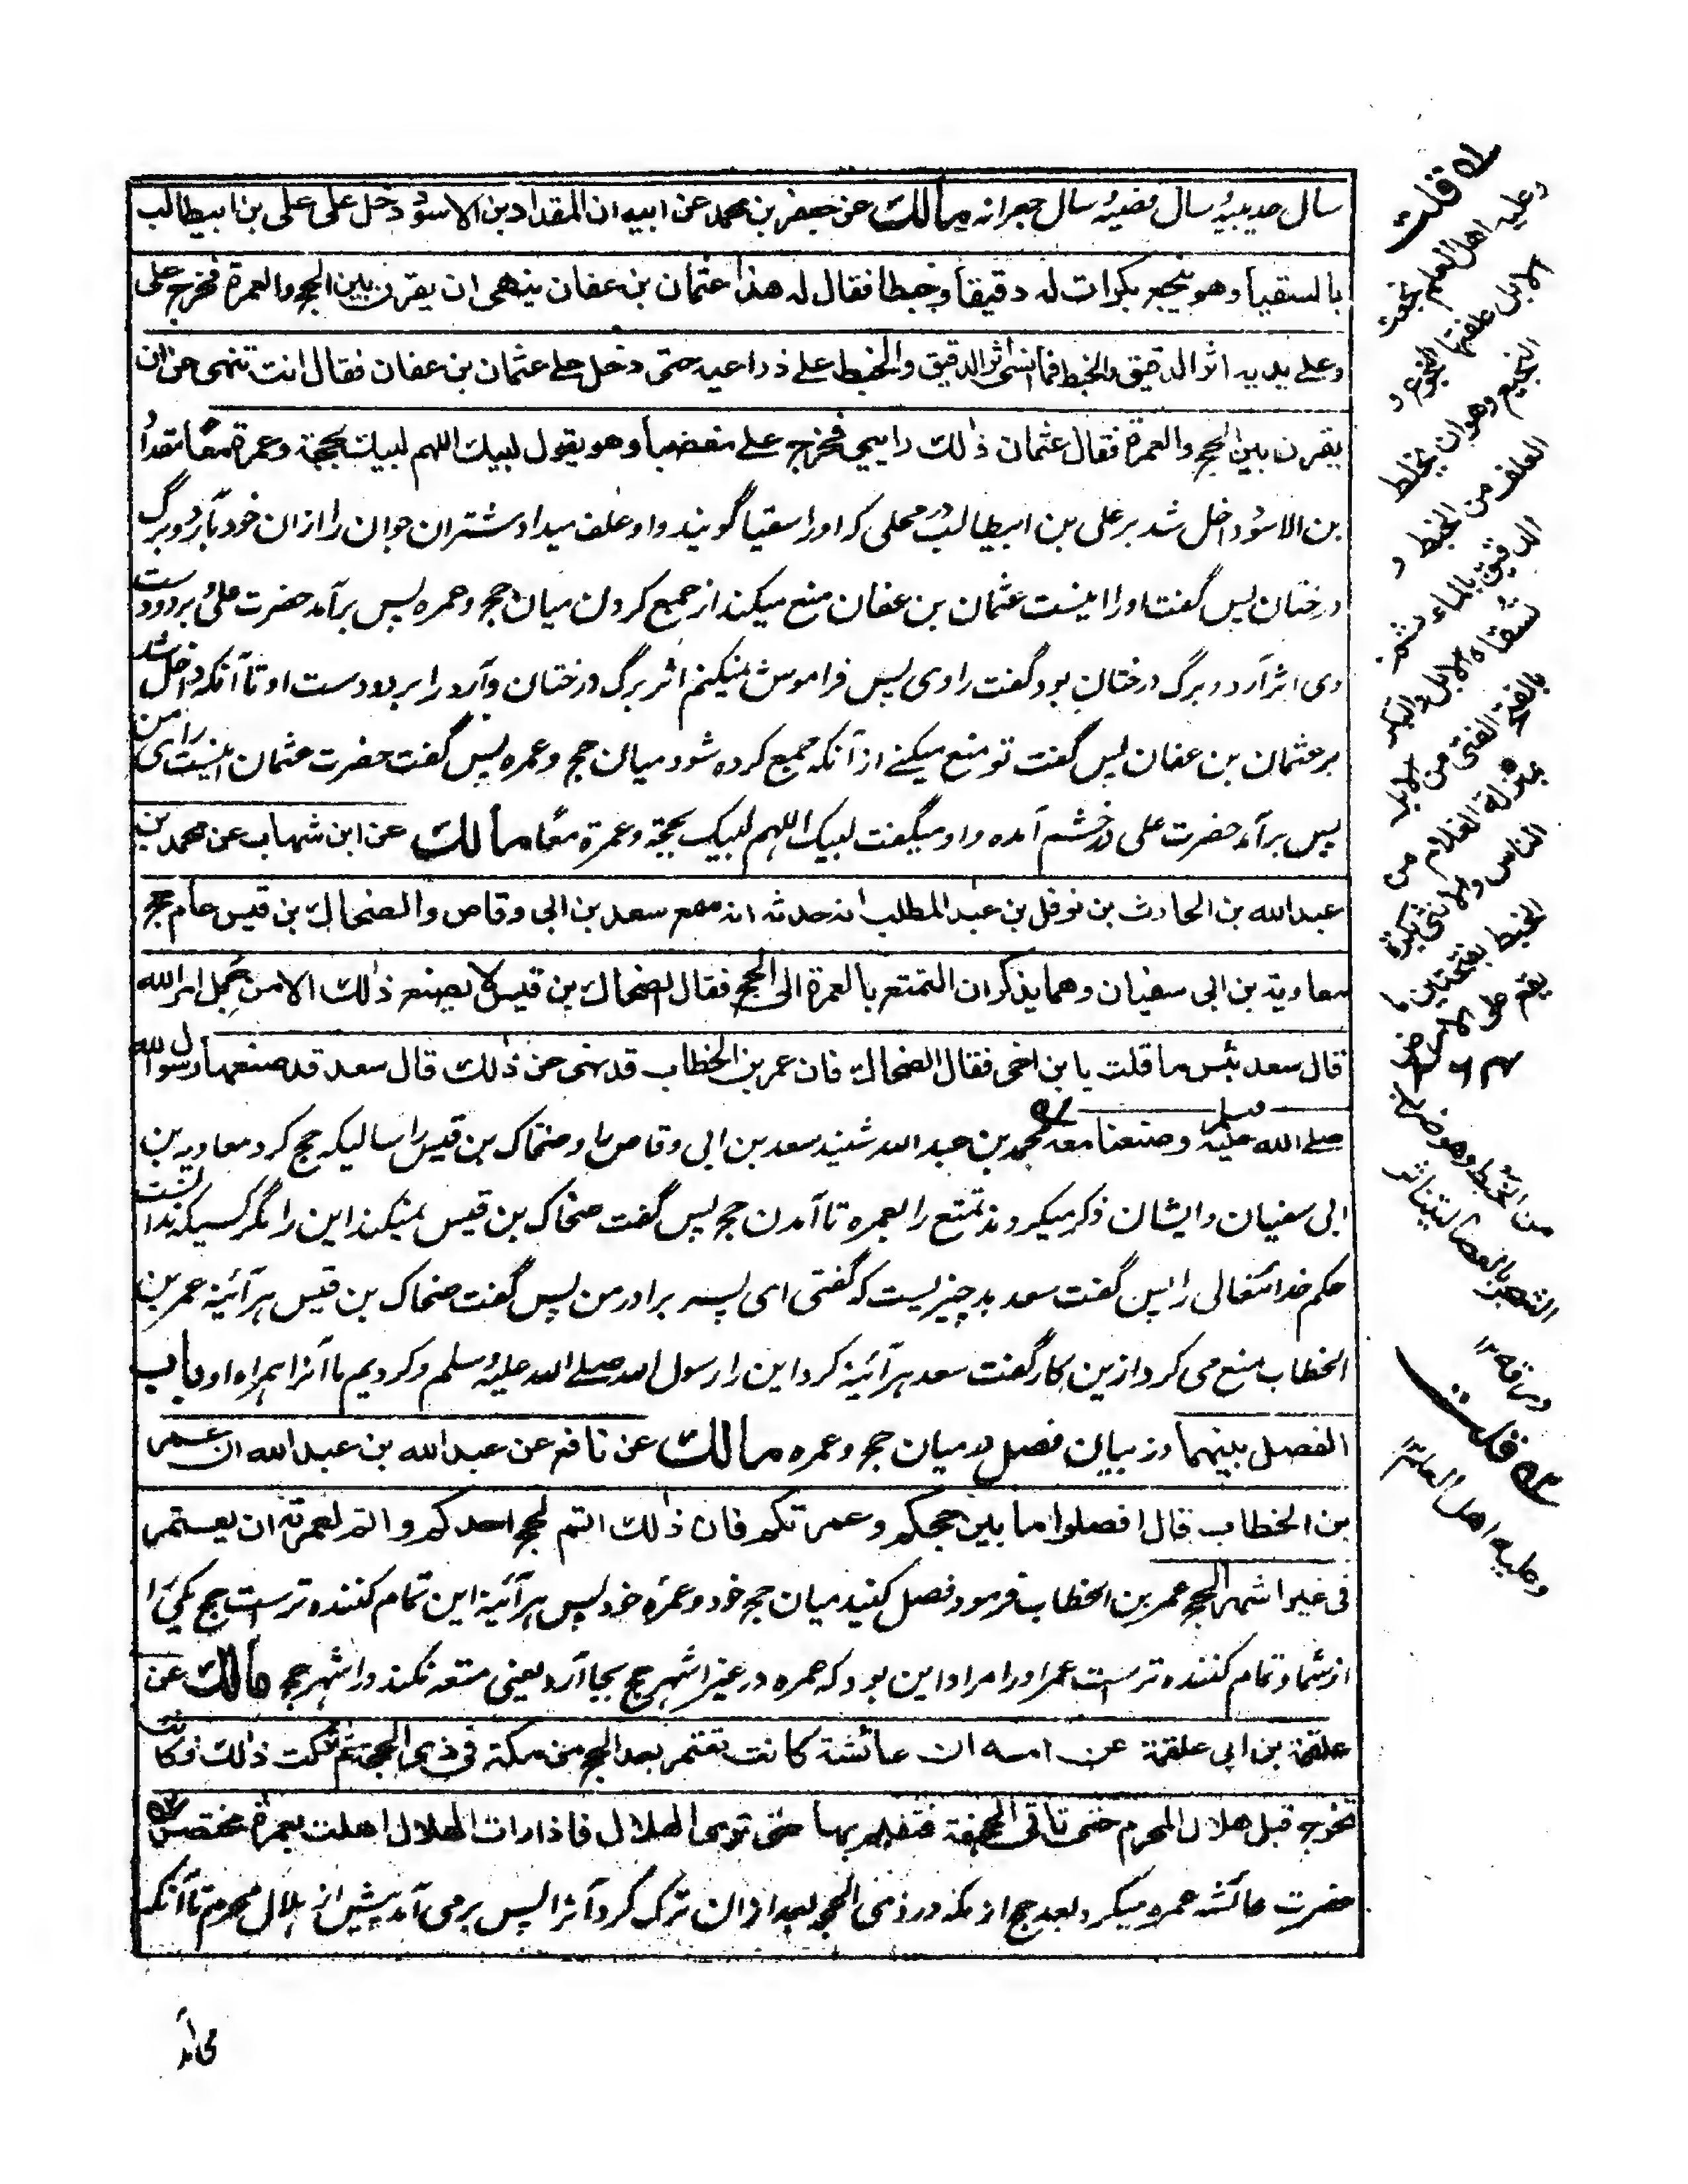 سال حدیبیه سال قضیه سال جعرانه مالك عن جعفر بن محمد عن ابیه ان المقداد بن الاسود دخل علی علی بن ابیطالب
بالسقیا وهو ینجع بکرات له دقیقا وخبطا فقال له هذا عثمان بن عفان ینهی ان یقرن بین الحج والعمرة فخرج علی
وعلی یدیه اثر الدقیق والخبط فما انسی اثر الدقیق والخبط علی ذراعیه حتی دخل علی عثمان بن عفان فقال انت تنهی عن ان
یقرن بین الحج والعمرة فقال عثمان ذٰلك رایی فخرج علی مغضبا وهو یقول لبیك اللهم لبیك بحجة وعمرة معًا مقداد
بن الاسود داخل شد بر علی بن ابیطالب در محلی که او را سقیا گویند و او علف میداد شتران جوان را از ان خود بآرد و برگ
درختان پس گفت او را اینست عثمان بن عفان منع میکند از جمع کردن میان حج و عمره پس برآمد حضرت علی و بر دو دست
وی اثر آرد و برگ درختان بود گفت راوی پس فراموش نمیکنم اثر برگ درختان و آرد را بر دو دست او تا آنکه داخل شد
بر عثمان بن عفان پس گفت تو منع میکنی از آنکه جمع کرده شود میان حج و عمره پس گفت حضرت عثمان اینست رای من
پس برآمد حضرت علی در خشم آمده و او میگفت لبیک اللهم لبیک بحجة وعمرة معًا مالك عن ابن شهاب عن محمد بن
عبد الله بن الحارث بن نوفل بن عبد المطلب انه حدثه انه سمع سعد بن ابی وقاص والضحاك بن قیس عام حج
معاویة بن ابی سفیان وهما یذکران التمتع بالعمرة الی الحج فقال الضحاك بن قیس لا یصنع ذٰلك الا من جهل امر الله
قال سعد بئس ما قلت یا بن اخی فقال الضحاك فان عمر بن الخطاب قد نهی عن ذٰلك قال سعد قد صنعها رسول الله
صلی الله علیه وسلم وصنعنا معه محمد بن عبد الله شنید سعد بن ابی وقاص را و ضحاک بن قیس را سالیکه حج کرد معاویه بن
ابی سفیان و ایشان ذکر میکردند تمتع را بعمره تا آمدن حج پس گفت ضحاک بن قیس نمیکند این را مگر کسیکه ندانست
حکم خدا تعالی را پس گفت سعد بد چیزیست که گفتی ای پسر برادر من پس گفت ضحاک بن قیس هرآئینه عمر بن
الخطاب منع می کرد ازین کار گفت سعد هرآئینه کرد این را رسول الله صلی الله علیه وسلم و کردیم ما آنرا همراه او باب
الفصل بینهما در بیان فصل در میان حج و عمره مالك عن نافع عن عبد الله بن عبد الله ان عمر
بن الخطاب قال افصلوا ما بین حجکم وعمرتکم فان ذٰلك اتم لحج احدکم واتم لعمرته ان یعتمر
فی غیر اشهر الحج عمر بن الخطاب فرمود فصل کنید میان حج خود و عمره خود پس هرآئینه این تمام کننده ترست حج یکی را
از شما و تمام کننده ترست عمره او را مراد این بود که عمره در غیر اشهر حج بجا آرد یعنی متعه نکند در اشهر حج مالك عن
علقمة بن ابی علقمة عن امه ان عائشة کانت تعتمر بعد الحج من مکة فی ذی الحجة ثم ترکت ذٰلك فکانت
تخرج قبل هلال المحرم حتی تاتی الجحفة فتقیم بها حتی تری الهلال فاذا رات الهلال اهلت بعمرة
حضرت عائشه عمره میکرد بعد حج از مکه در ذی الحجه بعد از ان ترک کرد آنرا پس برمی آمد پیش از هلال محرم تا آنکه
می آمد
قلت
وعلیه اهل العلم نجعت
الابل علفتها النجوع و
النجیع وهو ان یخلط
العلف من الخبط و
الدقیق بالماء ثم
تسقاه الابل والبکر
بالفتح الفتی من الابل
بمنزلة الغلام من
الناس والانثی بکرة
الخبط بفتحتین ما
من الخبط وهو ضرب
الشجر بالعصا لیتناثر
ورقه ۱۲
قلت
وعلیه اهل العلم ۱۲